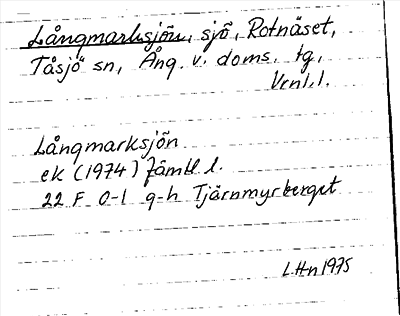 Långmarksjön, sjö, Rotnäset,
Tåsjö sn, Ång. v. doms. tg,
Vrnl.l.
Långmarksjön
ek (1974) Jämtl. l.
22 F 0-1 g-h Tjärnmyrberget
L.Hn 1975